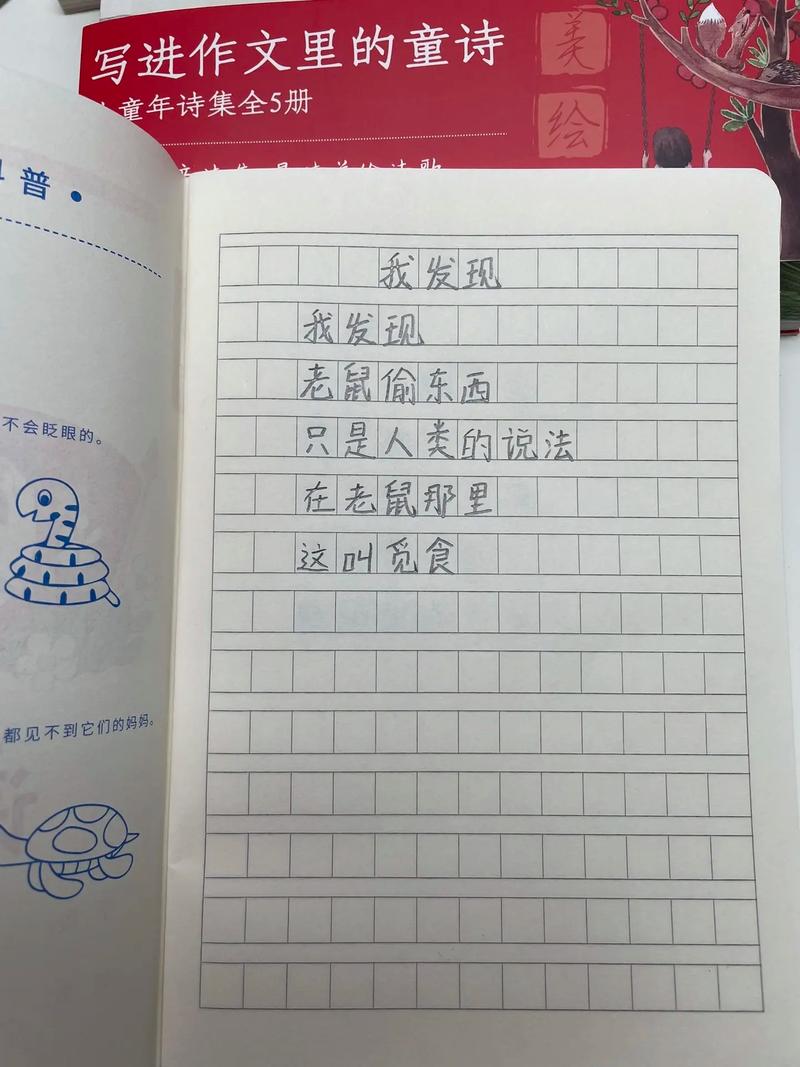 写进作文里的童诗
童年诗集全5册
美
绘
普
不会眨眼的。
都见不到它们的妈妈。
我发现
我发现
老鼠偷东西
只是人类的说法
在老鼠那里
这叫觅食